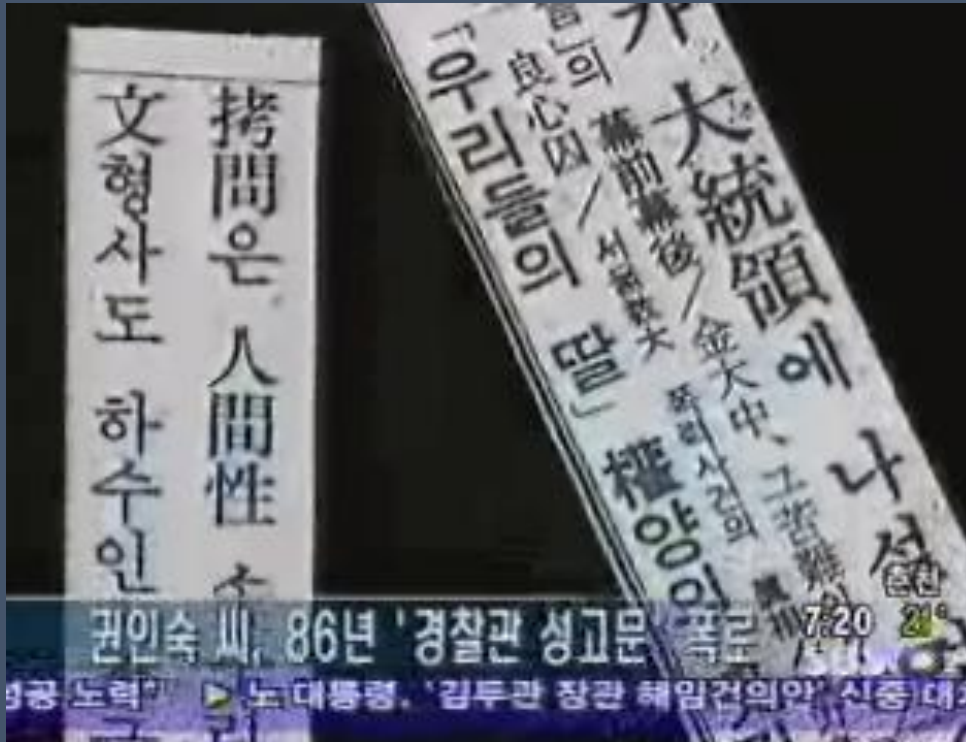 拷問은 人間性
文형사도 하수인
가 大統領에 나섰
의 幕前幕後/金大中、그苦難
良心囚/서울敎大 폭력사건의
「우리들의 딸」 權양이
권인숙 씨, 86년 '경찰관 성고문' 폭로
7:20
춘천
성공 노력" ▶ 노 대통령, '김두관 장관 해임건의안' 신중 대처